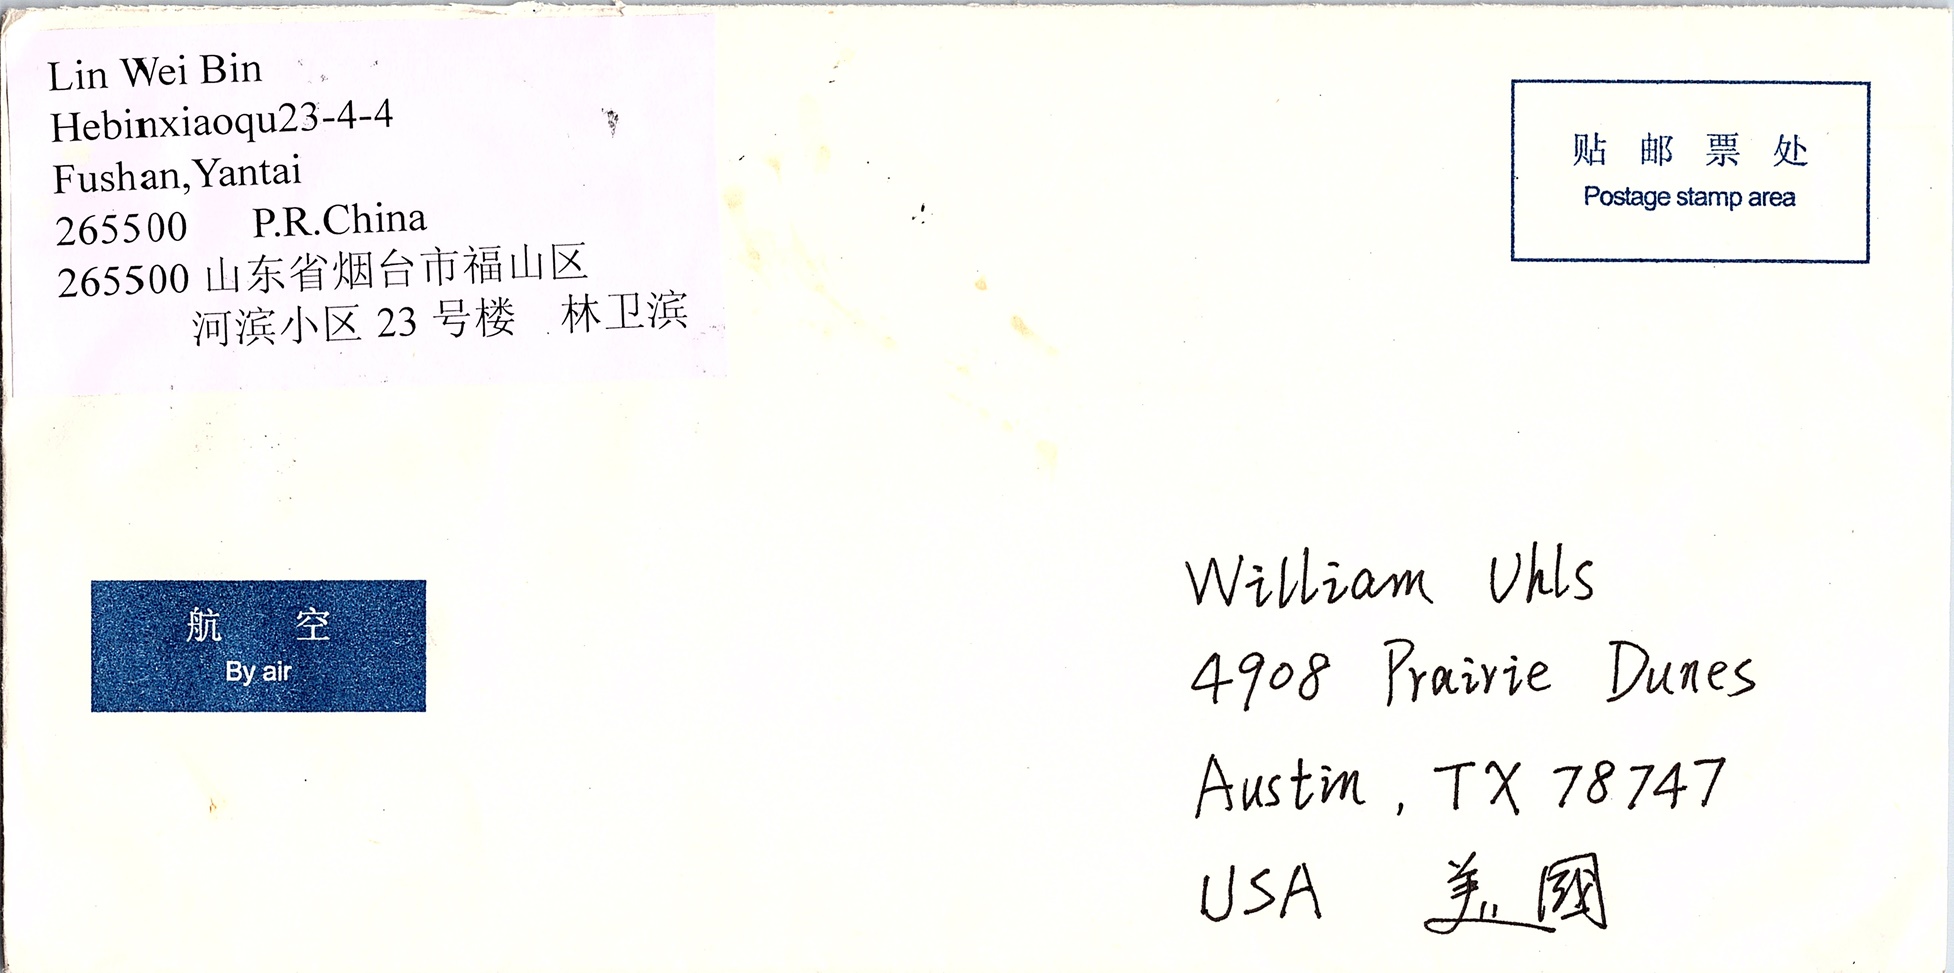 Lin Wei Bin
Hebinxiaoqu23-4-4
Fushan,Yantai
265500 P.R.China
265500 山东省烟台市福山区
河滨小区 23 号楼 林卫滨
贴邮票处
Postage stamp area
航空
By air
William Uhls
4908 Prairie Dunes
Austin, TX 78747
USA 美國